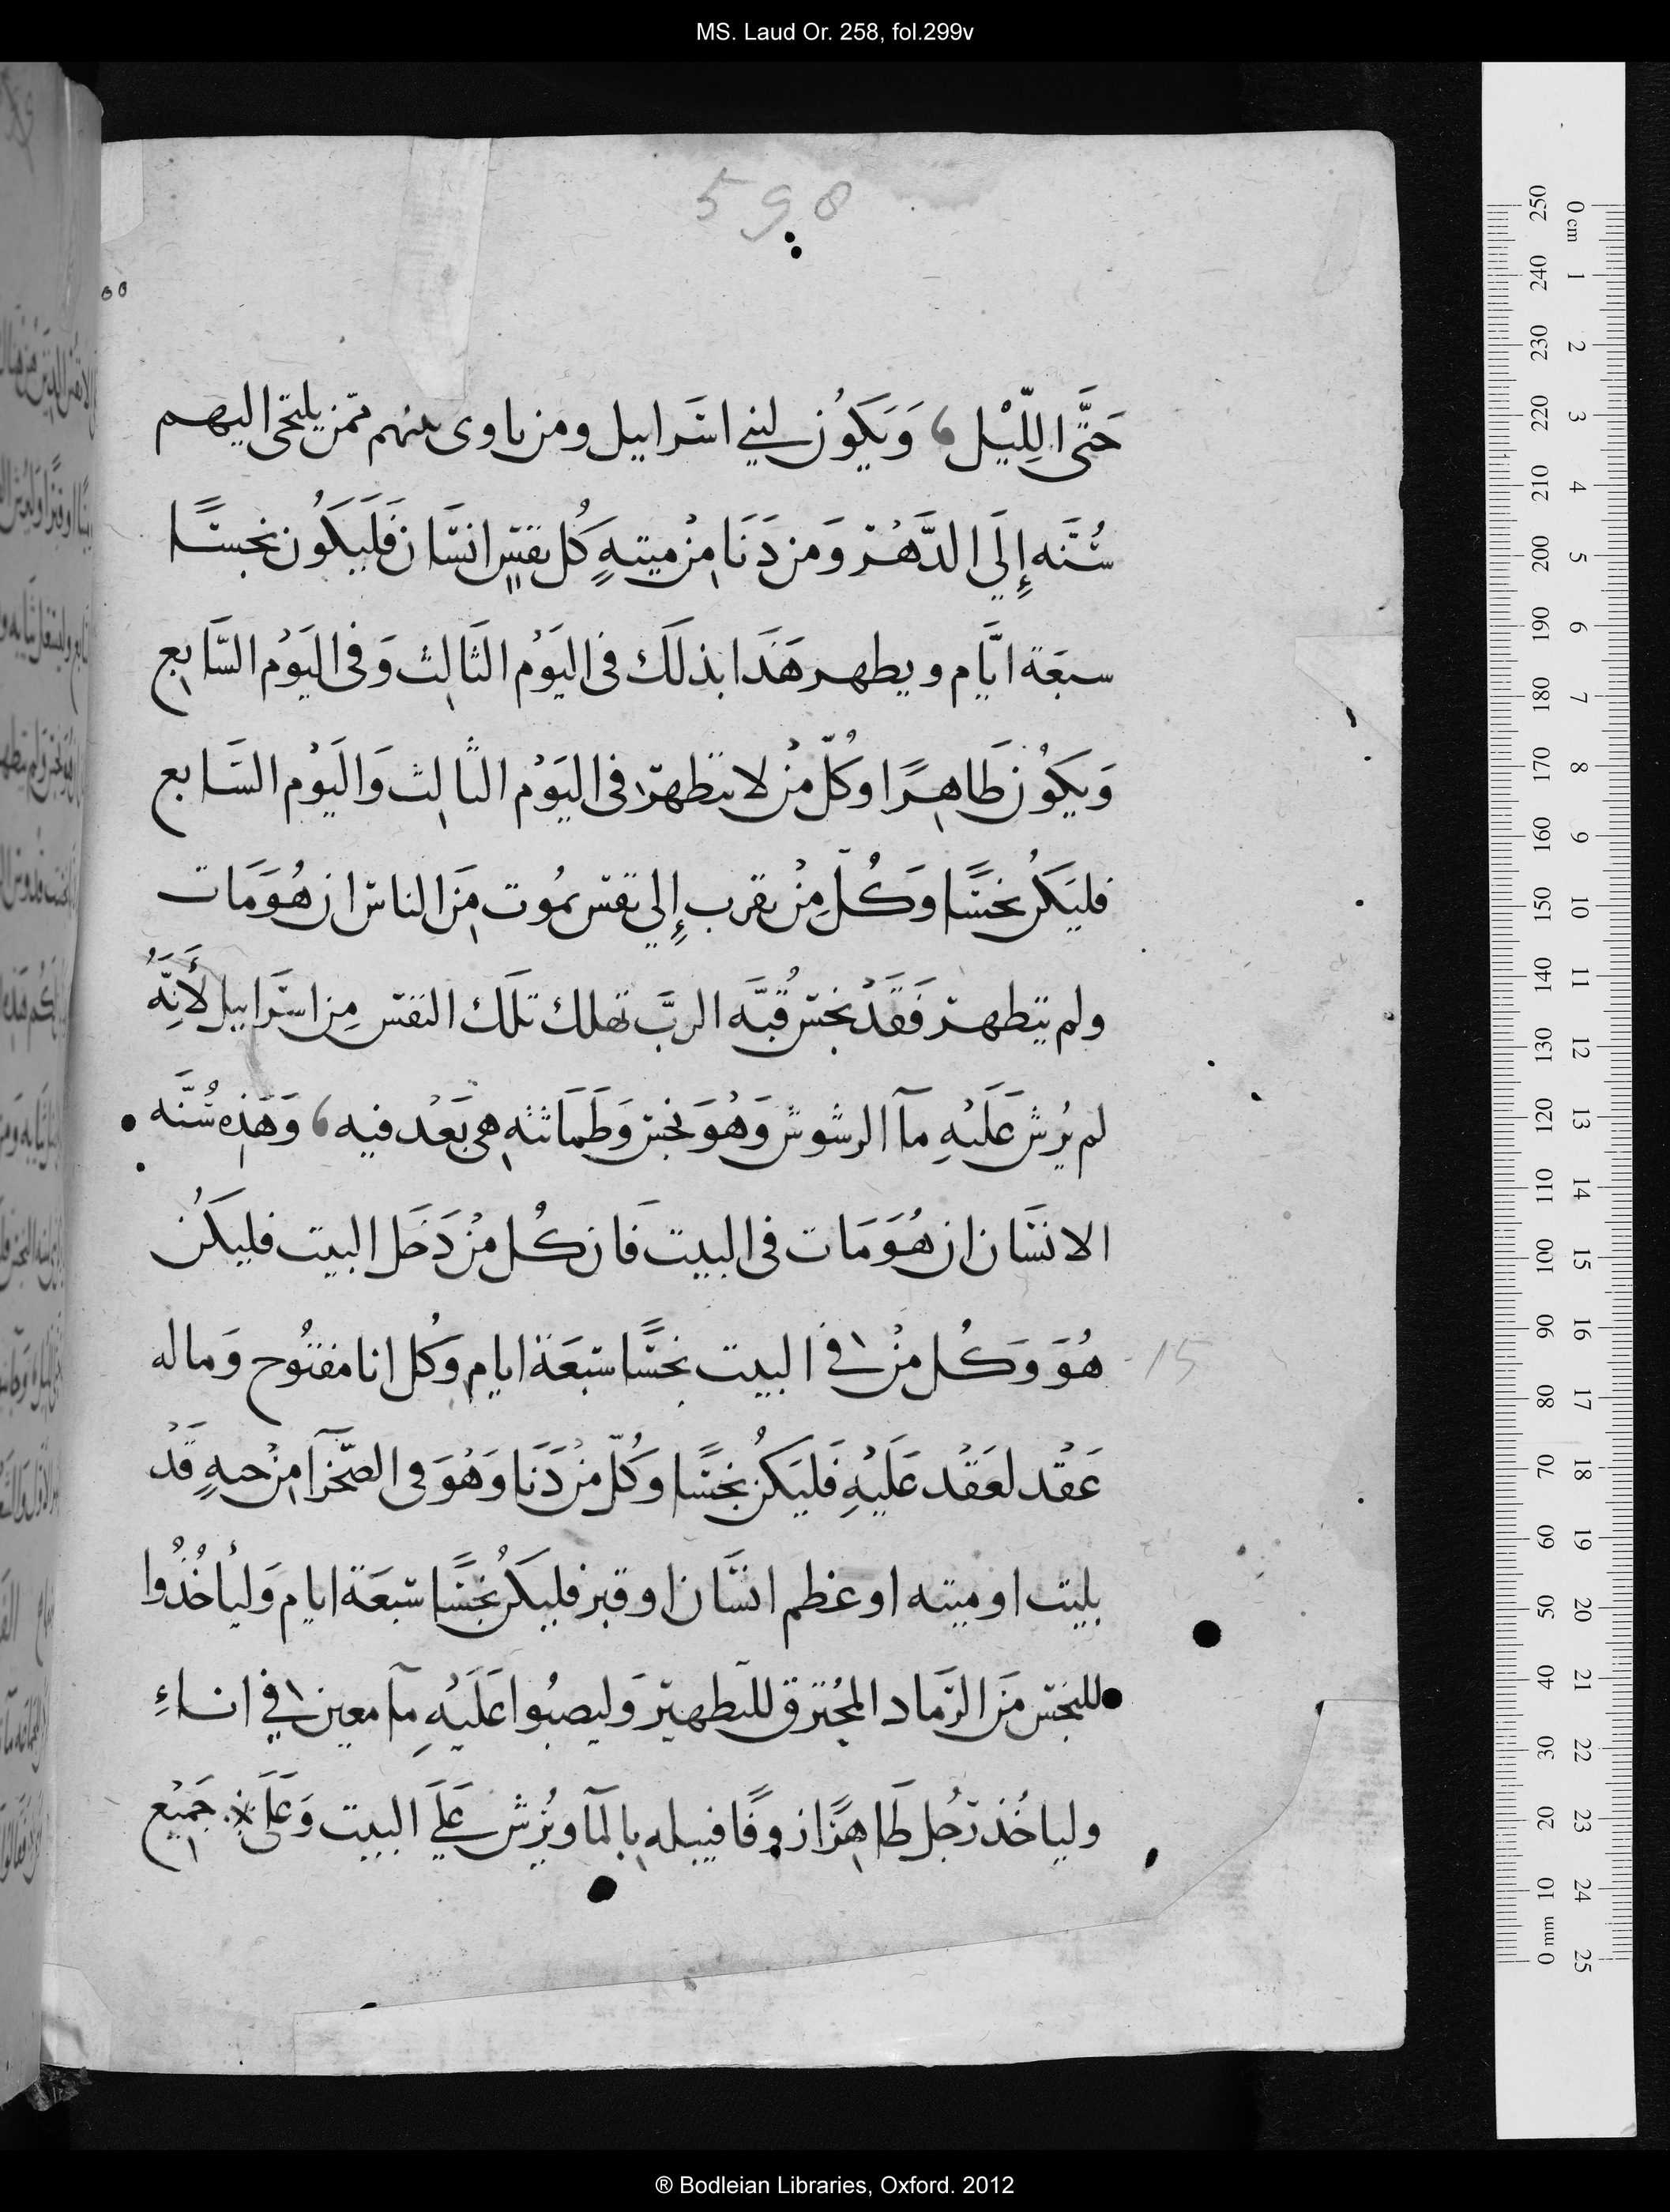 MS. Laud Or. 258, fol.299v
598
حَتَّى اللِّيْل، وَيَكَوُن لبني اسَرايل ومن ياوى منهم ممّن يلتجى اليهم
سُنَّه إِلَي الدَّهْر وَمن دَنَا مِنْ ميتهِ كُل نفسٍ انسَان فَلَيَكُون نجسًا
سبعَة ايَّام ويطهر هَذَا بذلَك فى اليَوْم الثَالِث وَفى اليَوْم السَّابِع
وَيكَوُن طَاهِرًا وكُلّ مْن لا يتطهر فى اليَوْم الثَالِث وَاليَوْم السَابع
فليَكُن نجسًا وَكُلّ مِنْ يقرب إِلي نفس يمُوت مَِن الناس ان هُوَ مَات
ولم يتطهر فَقَدْ نجس قُبَّه الربَّ تهلك تلَك النفس مِن اسَرايل لأَنِّهُ
لم يُرش عَلَيْهِ مآ الرشوش وَهُوَ نجس وَطَمَاثتهِ هى بَعْد فيه، وَهَذِه سُنَّه
الانسَان ان هُوَ مَات فى البيت فَان كُل مْن دَخَل البيت فليَكُن
هُوَ وَكُل مْن فى البيت نجسًا سبعَة ايام وكُل انا مفتُوح وَماله
15
عَقْد لعَقْد عَلَيْهِ فَليَكُن نجسًا وكُلّ مْن دَنَا وَهُوَ فى الصّحَرآ مِنْ حيهٍ قَدْ
بليت او ميته او عظم انسَان او قبر فليَكُن نجسًا سبعَة ايام وَليأخُذُوا
للنجس مَِن الرَماد المُحِترق للتَطهير وَليصبُوا عَلَيْهِ مآ معين في اناءِ
ولياخُذ رَجُل طَاهِرًا زوفًا فيبله بِالمآ ويُرش عَلَي البيت وَعَلَى جَميْع
0 cm 1 2 3 4 5 6 7 8 9 10 11 12 13 14 15 16 17 18 19 20 21 22 23 24 25
250 240 230 220 210 200 190 180 170 160 150 140 130 120 110 100 90 80 70 60 50 40 30 20 10 0 mm
® Bodleian Libraries, Oxford. 2012